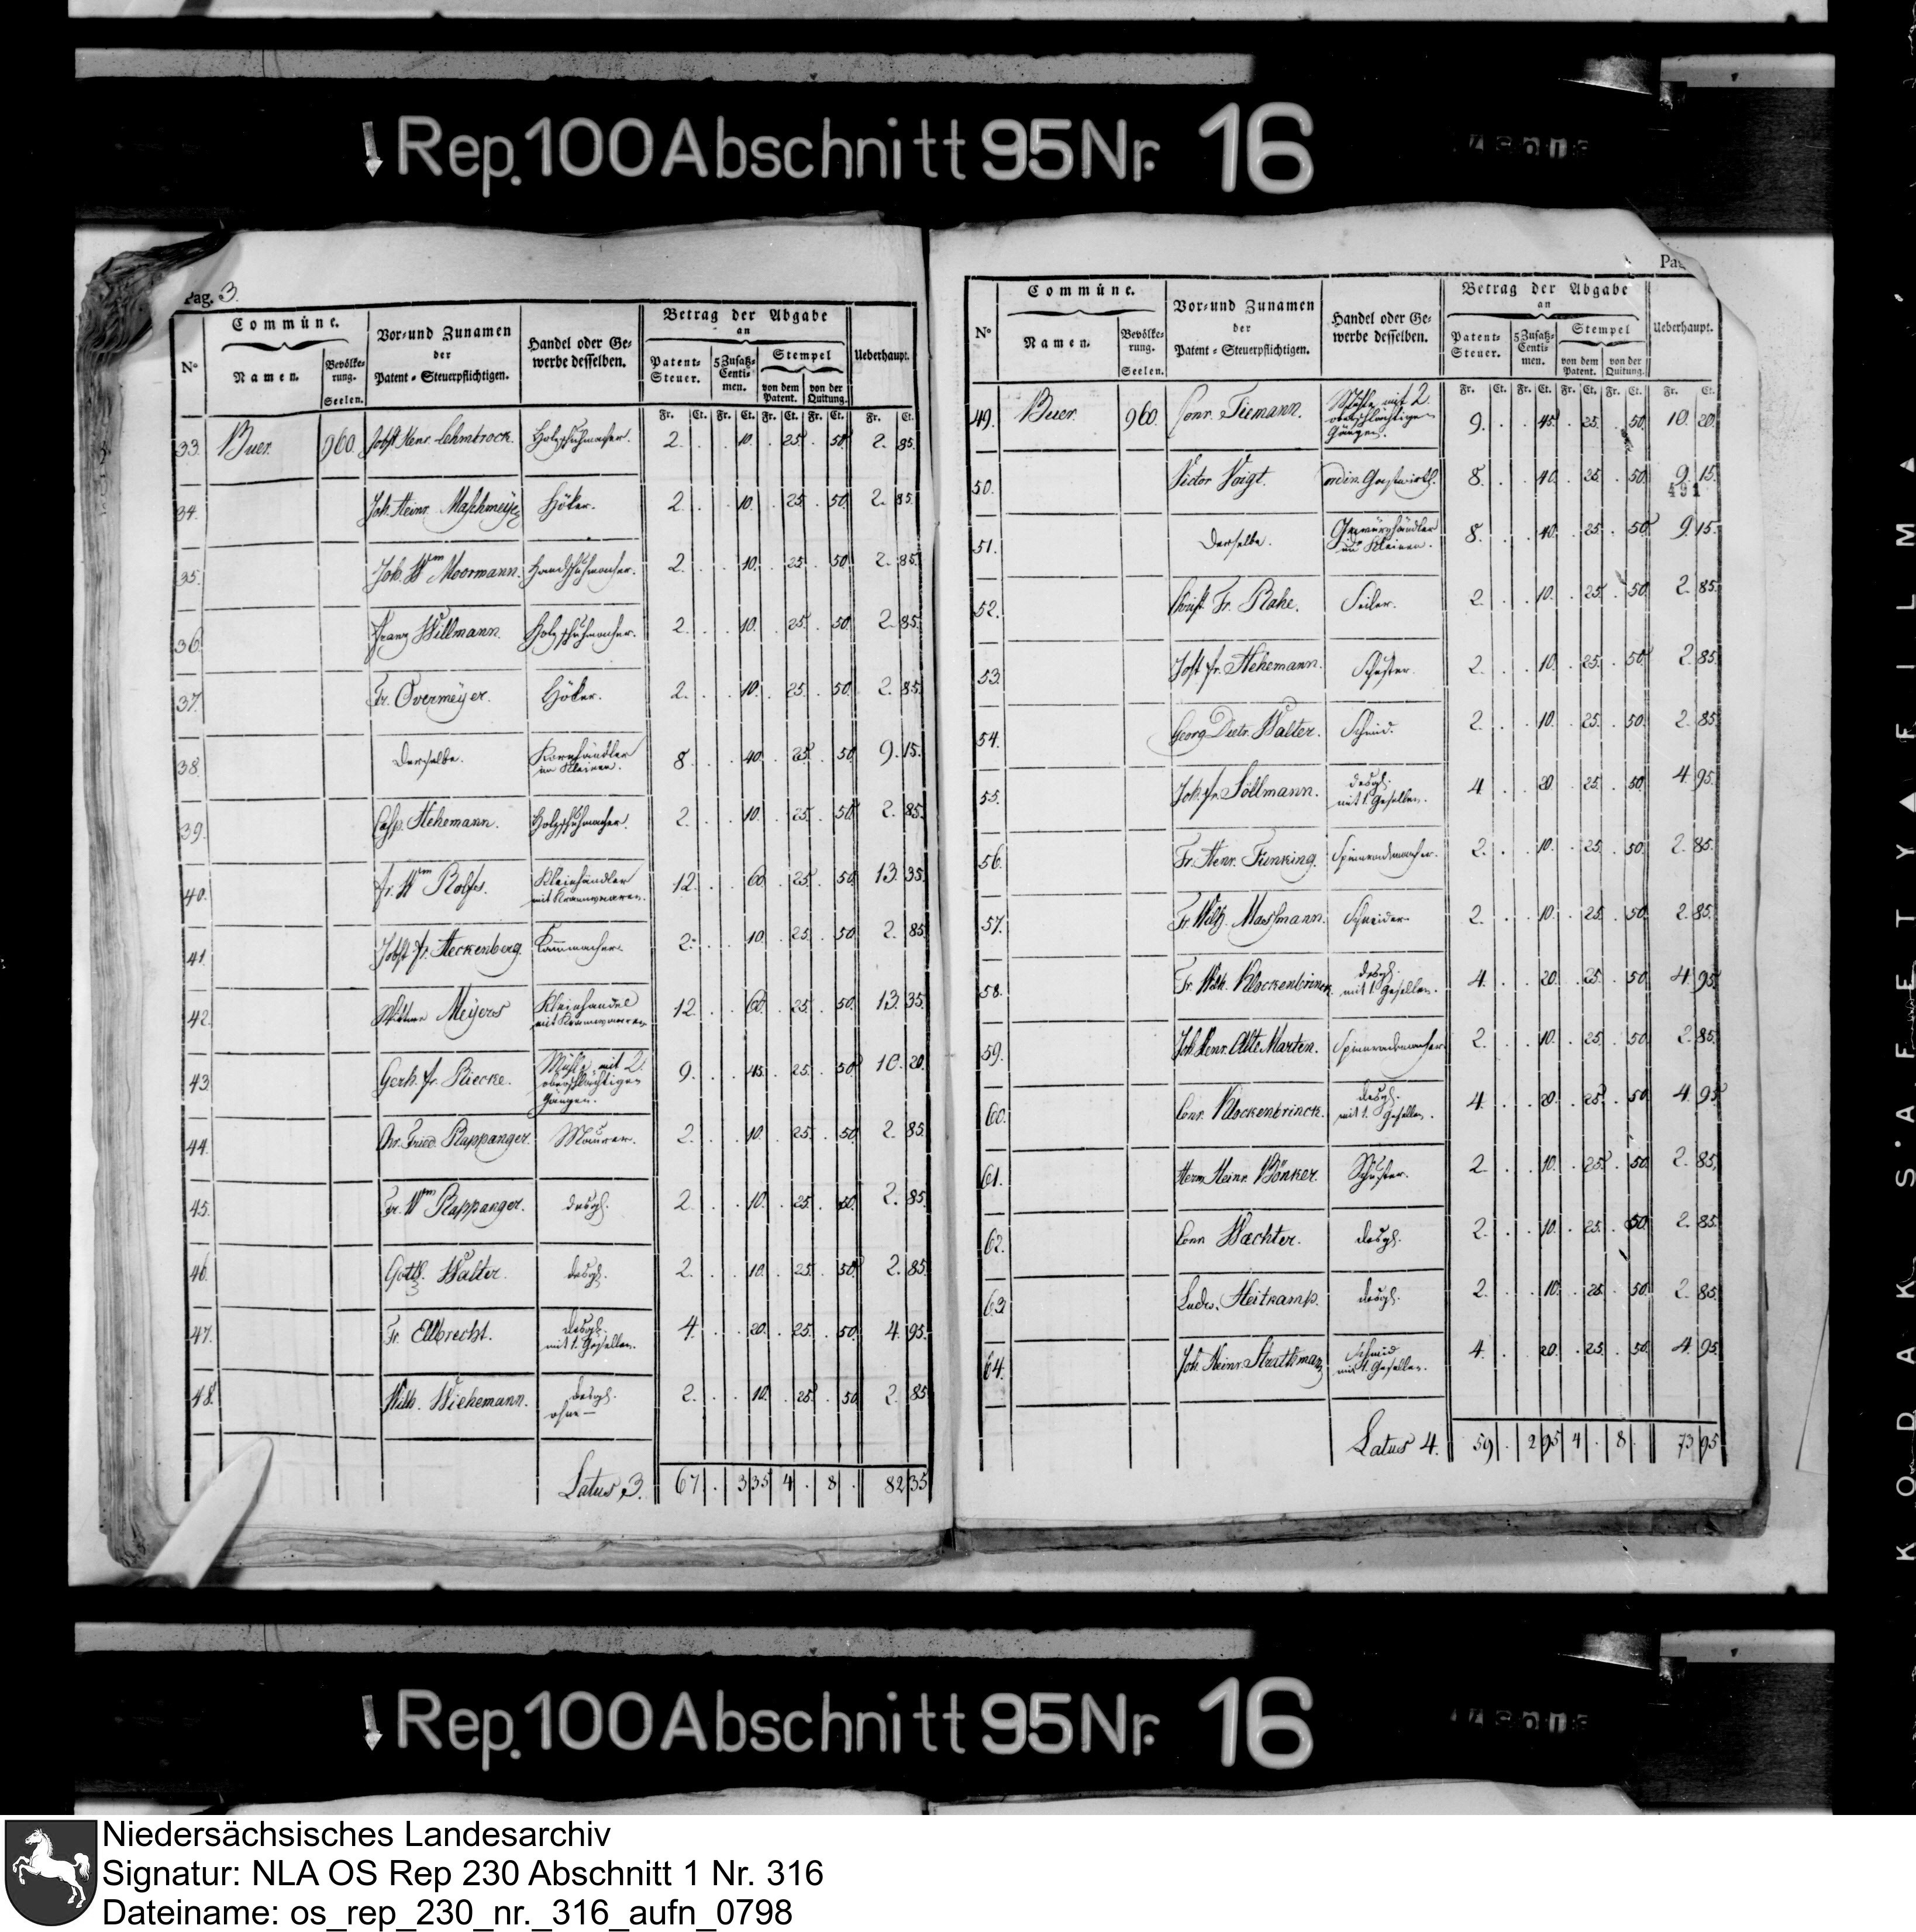 Rep. 100 Abschnitt 95 Nr. 16
Pag. 3.
N° Commüne. Vor- und Zunamen der Patent-Steuerpflichtigen. Handel oder Gewerbe desselben. Betrag der Abgabe an Ueberhaupt.
Namen. Bevölkerung. Seelen. Patent-Steuer. 5 Zusatz-Centimen. Stempel von dem Patent. von der Quitung.
Fr. Ct. Fr. Ct. Fr. Ct. Fr. Ct. Fr. Ct.
33. Buer. 960. Jobst Henr. Lehmbrock. Holzschuhmacher. 2. . . 10. . 25 . 50 2. 85.
34. Joh. Heinr. Maschmeyer Höker. 2. . . 10. . 25 . 50. 2. 85.
35. Joh. Wm Moormann. Handschuhmacher. 2. . . 10. . 25 . 50 2. 85.
36. Franz Willmann. Holzschuhmacher. 2. . . 10. . 25. . 50 2. 85.
37. Fr. Overmeÿer. Höker. 2. . . 10. . 25. . 50. 2. 85.
38. Derselbe. Kornhändler im Kleinen. 8. . . 40. . 25 . 50 9. 15.
39. Casp. Hehemann. Holzschuhmacher. 2. . . 10. . 25. . 50 2. 85.
40. Fr. Wm Rolfes. Kleinhändler mit Kramwaaren. 12. . . 60. . 25. . 50. 13. 35.
41. Jobst Fr. Heckenberg. Kammacher. 2. . . 10. . 25. . 50 2. 85.
42. Wittwe Meÿers Kleinhandel mit Kramwaaren 12. . . 60. . 25. . 50. 13. 35.
43. Gerh. Fr. Riecke. Mühle mit 2. oberschlächtigen Gängen. 9. . . 45. . 25. . 50 10. 20.
44. Chr. Fried. Rappanger. Maurer. 2. . . 10. . 25. . 50 2. 85.
45. Fr. Wm Rappanger. desgl. 2. . . 10. . 25. . 50. 2. 85.
46. Gottl. Walter. desgl. 2. . . 10. . 25. . 50 2. 85.
47. Fr. Ellbrecht. desgl. mit 1. Gesellen. 4. . . 20. . 25. . 50. 4. 95.
48. Wilh. Wiehemann. desgl. ohne — 2. . . 10. . 25 . 50. 2. 85
Latus 3. 67 . 3 35 4 . 8 . 82 35
Pag.
N° Commüne. Vor- und Zunamen der Patent-Steuerpflichtigen. Handel oder Gewerbe desselben. Betrag der Abgabe an Ueberhaupt.
Namen. Bevölkerung. Seelen. Patent-Steuer. 5 Zusatz-Centimen. Stempel von dem Patent. von der Quitung.
Fr. Ct. Fr. Ct. Fr. Ct. Fr. Ct. Fr. Ct.
49. Buer. 960. Conr. Tiemann. Mühle mit 2. oberschlächtigen Gängen. 9. . . 45. . 25. . 50. 10. 20.
50. Victor Voigt. ordin. Gastwirth. 8. . . 40. . 25. . 50 9. 15.
491
51. Derselbe. Gewürzhändler im Kleinen. 8. . . 40. . 25. . 50 9. 15.
52. Christ. Fr. Rahe. Seiler. 2. . . 10. . 25 . 50. 2. 85.
53. Jobst Fr. Hehemann. Schuster. 2. . . 10. . 25. . 50 2. 85.
54. Georg Dietr. Walter. Schmid. 2. . . 10. . 25. . 50. 2. 85
55. Joh. Fr. Söllmann. desgl. mit 1. Gesellen. 4. . . 20 . 25. . 50. 4. 95.
56. Fr. Henr. Tünking. Spinnradmacher. 2. . . 10. . 25. . 50. 2. 85.
57. Fr. Wilh. Massmann. Schneider. 2. . . 10. . 25. . 50. 2. 85.
58. Fr. Wilh. Klockenbrinck. desgl. mit 1 Gesellen. 4. . . 20. . 25. . 50 4. 95.
59. Joh. Henr. Alte Marten. Spinnradmacher. 2. . . 10. . 25. . 50. 2. 85.
60. Conr. Klockenbrinck. desgl. mit 1. Gesellen. 4. . . 20. . 25 . 50. 4. 95
61. Herm. Heinr. Bönker. Schuster. 2. . . 10. . 25. . 50. 2. 85.
62. Conr. Waechter. desgl. 2. . . 10. . 25. . 50. 2. 85.
63 Ludw. Heitkamp. desgl. 2. . . 10. . 25. . 50. 2. 85
64. Joh. Heinr. Strathman Schmid mit 1. Gesellen. 4. . . 20. . 25. . 50. 4. 95
Latus 4. 59 . 2 95 4 . 8 . 73 95
Rep. 100 Abschnitt 95 Nr. 16
KODAK S'AFETY FILM
Niedersächsisches Landesarchiv
Signatur: NLA OS Rep 230 Abschnitt 1 Nr. 316
Dateiname: os_rep_230_nr._316_aufn_0798